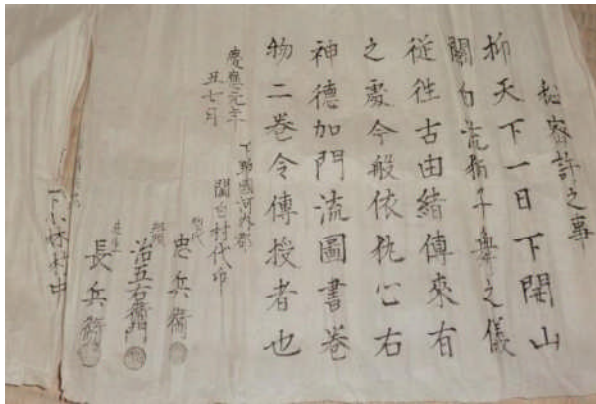 秘密許之事
抑天下一日下開山
關白流獅子舞之儀
従往古由緒傳來有
之處今般依執心右
神德加門流圖書巻
物二巻令傳授者也
慶應元年
丑七月
下野國河内郡
關白村代印
惣代 忠兵衛
組頭 治五右衛門
長兵衛
下小林村中